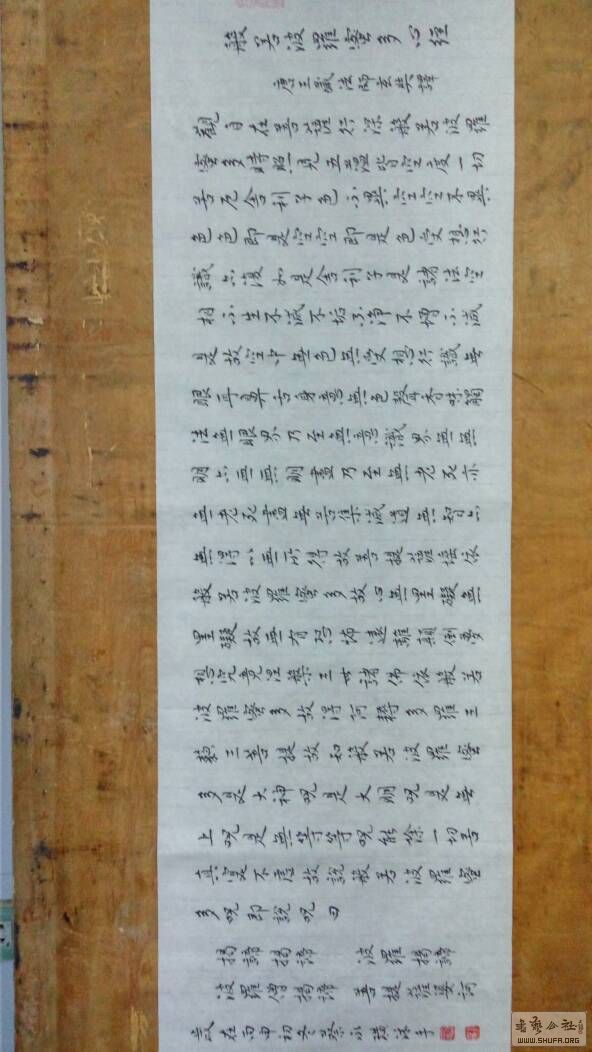 般若波羅蜜多心經
唐三藏法師玄奘譯
觀自在菩薩行深般若波羅
蜜多時照見五蘊皆空度一切
苦厄舍利子色不異空空不異
色色即是空空即是色受想行
識亦復如是舍利子是諸法空
相不生不滅不垢不淨不增不減
是故空中無色無受想行識無
眼耳鼻舌身意無色聲香味觸
法無眼界乃至無意識界無無
明亦無無明盡乃至無老死亦
無老死盡無苦集滅道無智亦
無得以無所得故菩提薩埵依
般若波羅蜜多故心無罣礙無
罣礙故無有恐怖遠離顛倒夢
想究竟涅槃三世諸佛依般若
波羅蜜多故得阿耨多羅三
藐三菩提故知般若波羅蜜
多是大神咒是大明咒是無
上咒是無等等咒能除一切苦
真實不虛故說般若波羅蜜
多咒即說咒曰
揭諦揭諦 波羅揭諦
波羅僧揭諦 菩提薩婆訶
歲在丙申初冬
书艺公社
WWW.SHUFA.ORG